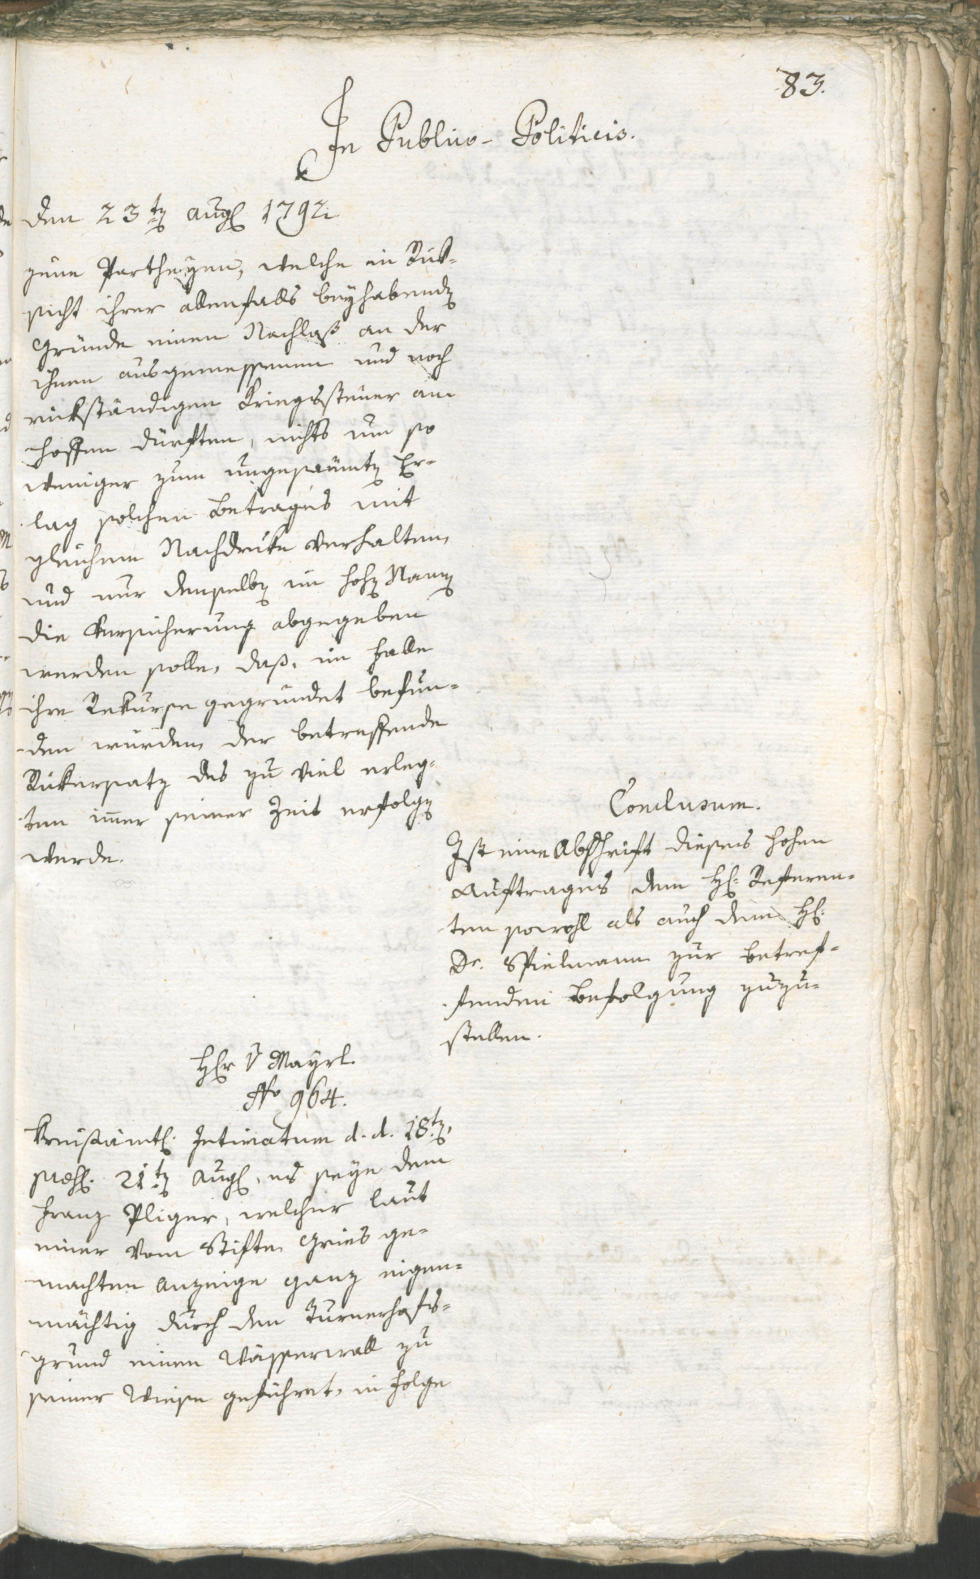 83.
In Publico-Politicis.
den 23ten Augl 1792
jene Partheyen, welche in Rük-
sicht ihrer allenfalls beyhabenden
Gründe einen Nachlaß an der
ihnen ausgemessenen und noch
rükständigen Kriegssteuer an-
hoffen dürften, nichts um so
weniger zum ungesäumten Er-
lag solchen Betrages mit
gleichem Nachdruke verhalten,
und nur denselben im hohen Namen
die Versicherung abgegeben
werden solle, daß, im Falle
ihre Rekurse gegründet befun-
den würden, der betreffende
Rükersatz des zu viel erleg-
ten im̅er seiner Zeit erfolgen
werde.
Conclusum.
Ist eine Abschrift dieses hohen
Auftrages dem H: Referen-
ten sowohl als auch dem H:
Dr. Spielmann zur betref-
fenden Befolgung zuzu-
stellen.
Hr v Mayrl.
No 964.
Kreisämtl. Intimatum d. d. 18ten,
praes. 21ten Augl, es seye dem
Franz Pliger, welcher laut
einer vom Stifte Gries ge-
machten Anzeige ganz eigen-
mächtig durch den Turnerhofs-
grund einen Wasserwall zu
seiner Wiese geführet, in Folge